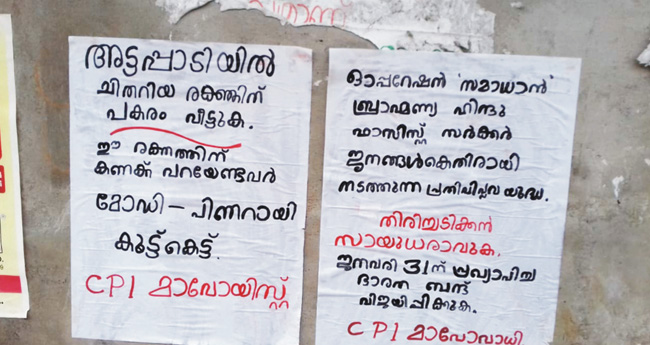 അട്ടപ്പാടിയിൽ
ചിതറിയ രക്തത്തിന്
പകരം വീട്ടുക.
ഈ രക്തത്തിന്
കണക്ക് പറയേണ്ടവർ
മോഡി - പിണറായി
കൂട്ട്കെട്ട്.
CPI മാവോയിസ്റ്റ്
ഓപ്പറേഷൻ 'സമാധാൻ'
ബ്രാഹ്മണ്യ ഹിന്ദു
ഫാസിസ്റ്റ് സർക്കർ
ജനങ്ങൾകെതിരായി
നടത്തുന്ന പ്രതിവിപ്ലവ യുദ്ധം.
തിരിച്ചടിക്കൻ
സായുധരാവുക.
ജനുവരി 31ന് പ്രഖ്യാപിച്ച
ഭാരത ബന്ദ്
വിജയിപ്പിക്കുക.
CPI മാവോവാദി